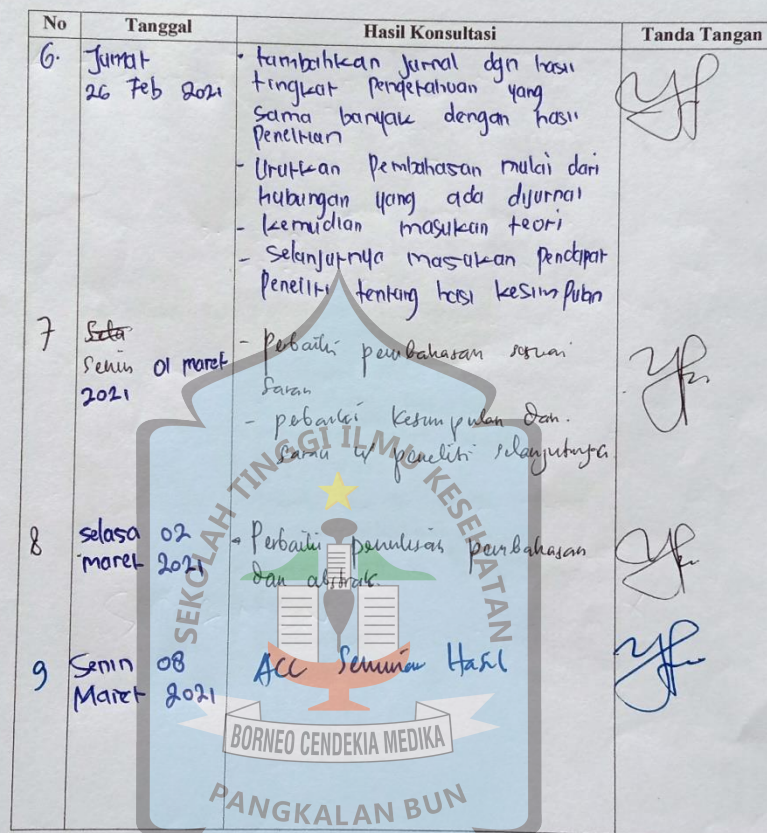 No Tanggal Hasil Konsultasi Tanda Tangan
6. Jumat
26 Feb 2021
- tambahkan jurnal dgn hasil
tingkat pengetahuan yang
sama banyak dengan hasil
Penelitian
- Urutkan Pembahasan mulai dari
hubungan yang ada dijurnal
- kemudian masukan teori
- Selanjutnya masukan Pendapat
Peneliti tentang hasil kesimpulan
7
Senin 01 maret
2021
- Perbaiki pembahasan sesuai
saran
- perbaiki kesimpulan dan
saran u/ peneliti selanjutnya.
8 selasa 02
maret 2021
- Perbaiki penulisan pembahasan
dan abstrak.
9 Senin 08
Maret 2021
ACC Seminar Hasil
SEKOLAH TINGGI ILMU KESEHATAN
BORNEO CENDEKIA MEDIKA
PANGKALAN BUN